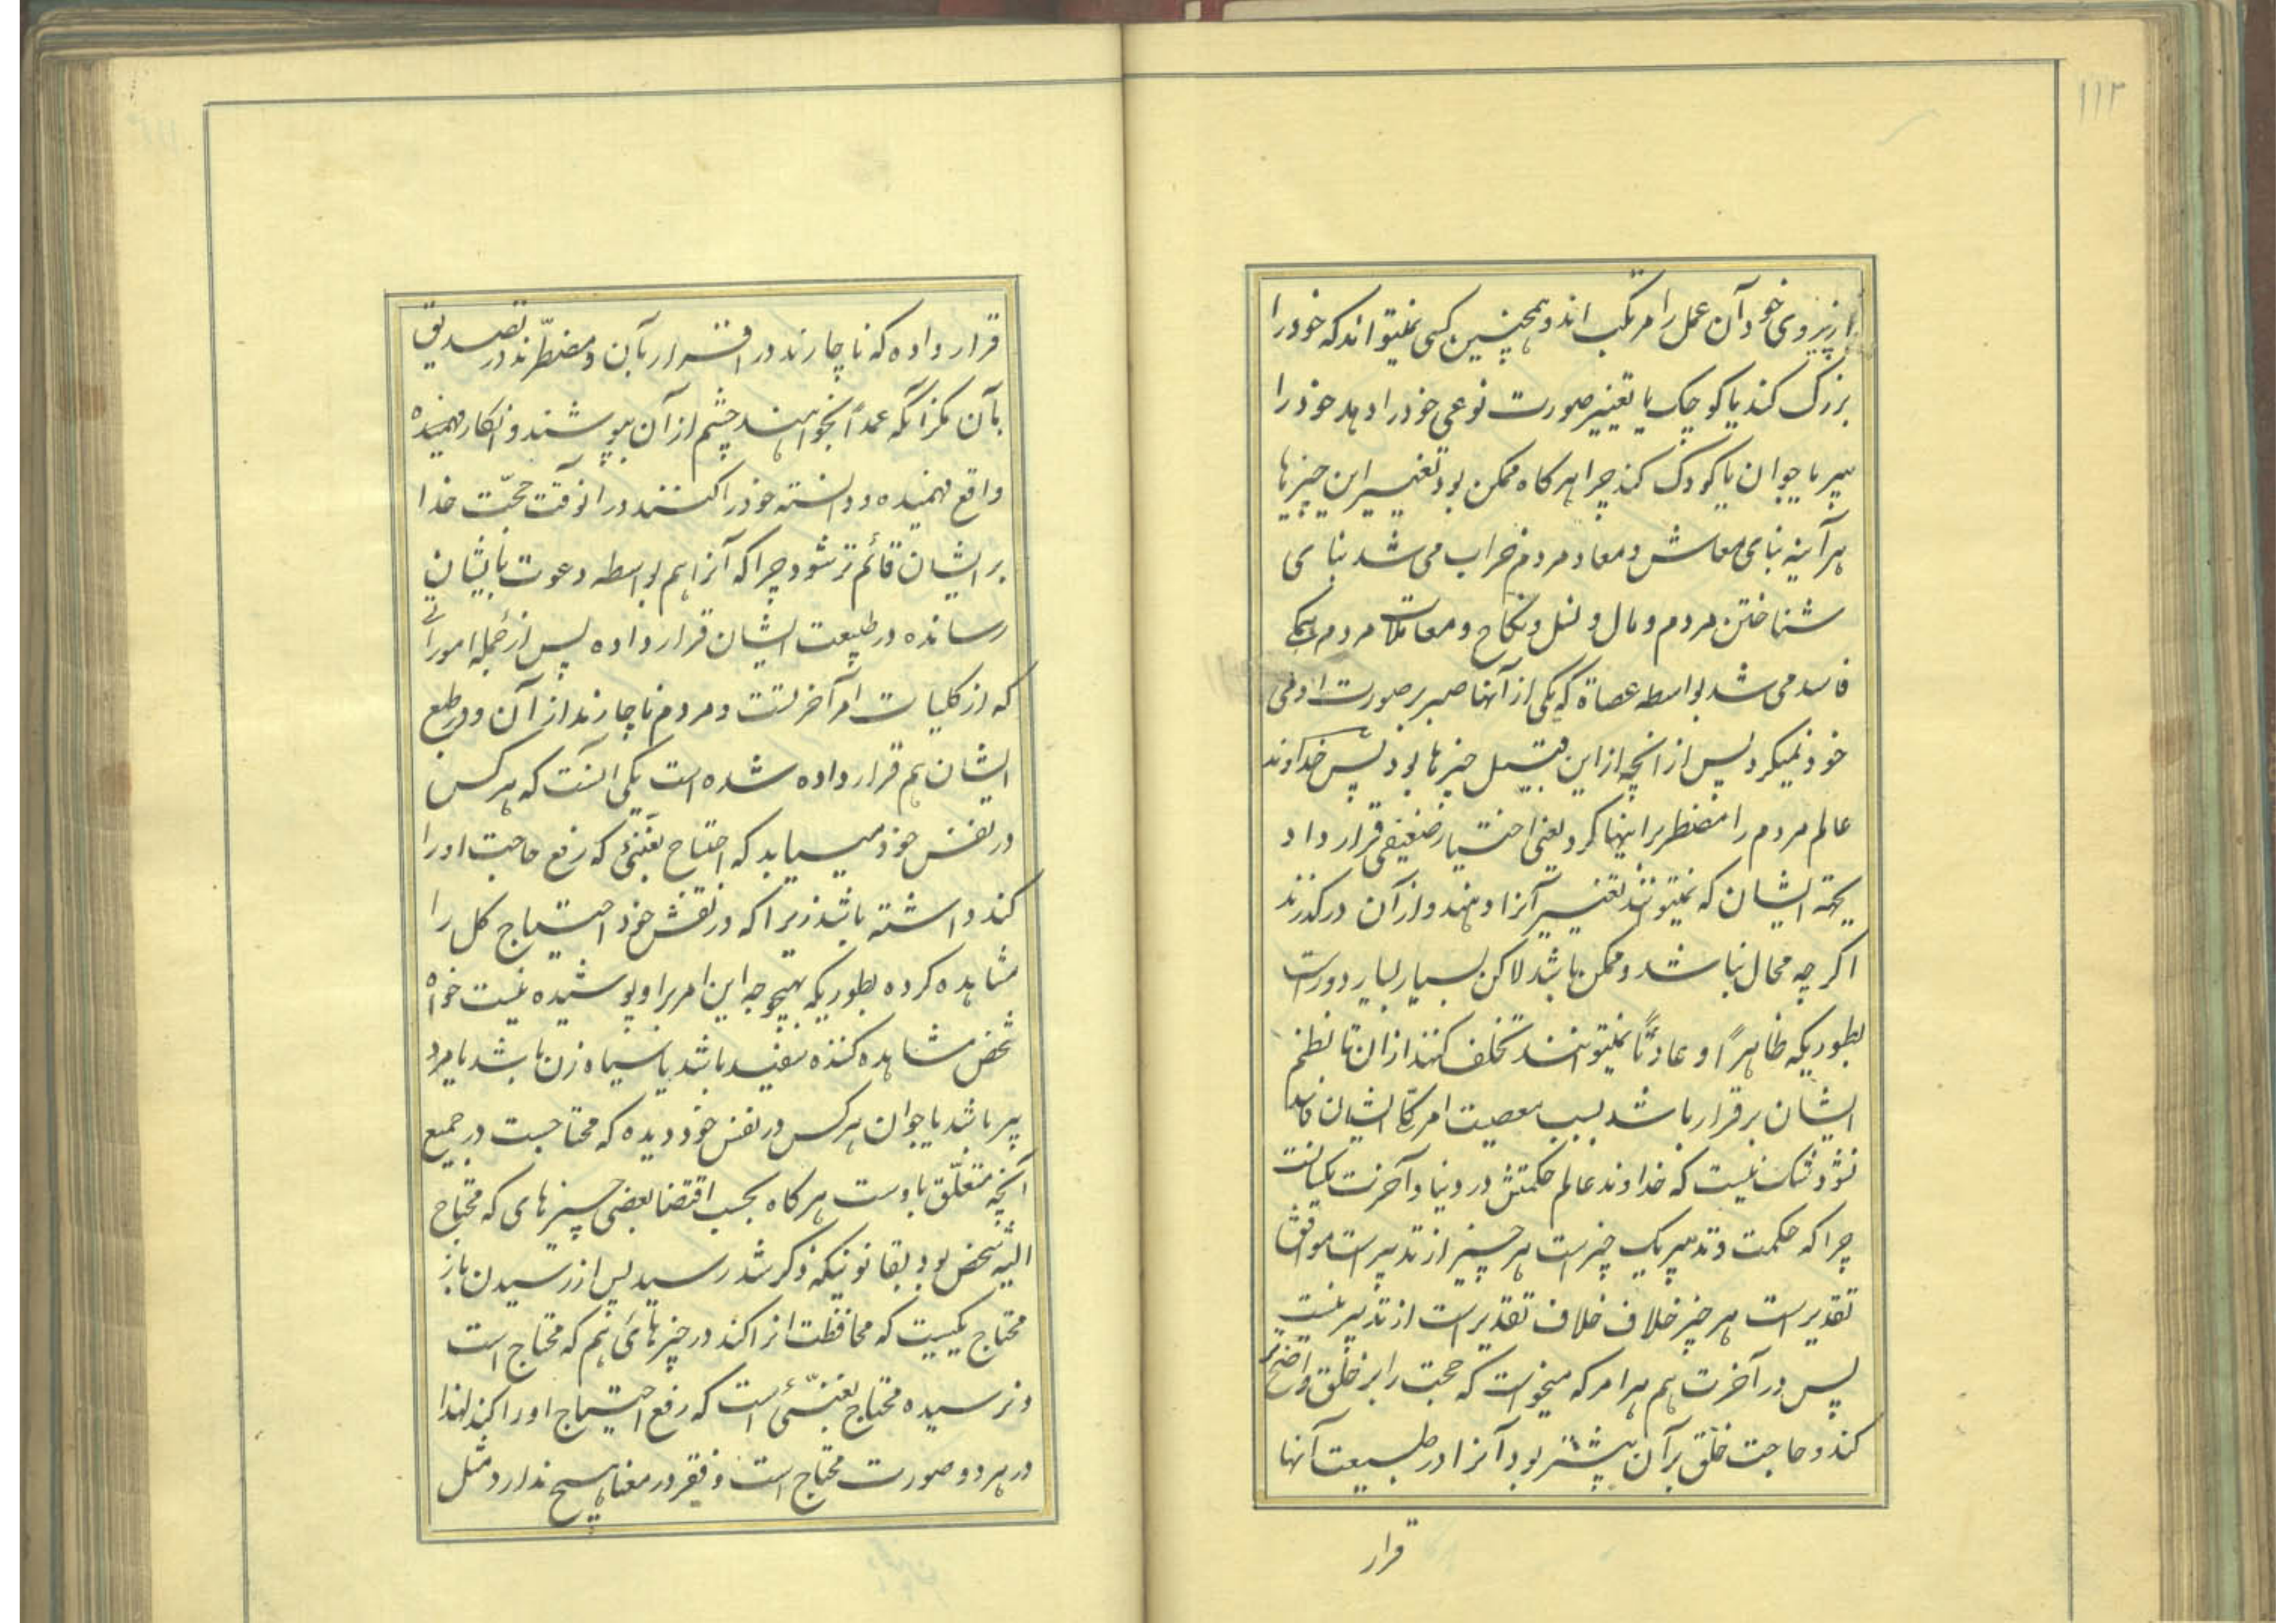 ۱۱۲
از پیروی خود آن عمل را مرتکب اند و همچنین کسی نمیتواند که خود را
بزرک کند یا کوچک یا تغییر صورت نوعی خود را دهد خود را
پیر یا جوان یا کودک کند چرا هرکاه ممکن بود تغییر این چیزها
هرآینه بنای معاش و معاد مردم خراب می شد بنای
شناختن مردم و مال و نسل و نکاح و معاملات مردم همکی
فاسد می شد بواسطه عصاة که یکی از آنها صبر بر صورت آدمی
خود نمیکرد پس از آنچه از این قبیل چیزها بود پس خداوند
عالم مردم را مضطر براینها کرد یعنی اختیار ضعیفی قرار داد
بجهة ایشان که نمیتونند تغییر آنرا دهند و از آن درکذرند
اکرچه محال نباشد و ممکن باشد لاکن بسیار بسیار دورست
بطوریکه ظاهراً و عادتاً نمیتوانند تخلف کنند از ان تا نظم
ایشان برقرار باشد بسبب معصیت امر کل ایشان فاسد
نشود شک نیست که خداوند عالم حکمتش در دنیا و آخرت یکسانست
چرا که حکمت و تدبیر یک چیز است هر چیز از تدبیر است موافق
تقدیر است هر چیز خلاف خلاف تقدیر است از تدبیر نیست
پس در آخرت هم هر امر که میخواست که حجت را بر خلق واضحتر
کند و حاجت خلق بر آن بیشتر بود آنرا در طبیعت آنها
قرار
قرار داده که ناچارند در اقرار بآن و مضطرّند در تصدیق
بآن مکر آنکه عمداً بخواهند چشم از آن بپوشند و انکار فهمیده
واقع فهمیده و دانسته خود را کنند در انوقت حجّت خدا
بر ایشان قائم تر شود چرا که آنرا هم بواسطه دعوت بایشان
رسانده در طبیعت ایشان قرار داده پس از جمله امورآتی
که از کلیات امر آخرتست و مردم ناچارند از آن و در طبع
ایشان هم قرار داده شده است یکی آنست که هر کس
در نفس خود میـیابد که احتیاج بغنیئی که رفع حاجت او را
کند داشته باشد زیرا که در نفس خود احتیاج کل را
مشاهده کرده بطوریکه بهیچوجه این امر بر او پوشیده نیست خواه
شخص مشاهده کننده سفید باشد یا سیاه زن باشد یا مرد
پیر باشد یا جوان هر کس در نفس خود دیده که محتاجست در جمیع
آنچه متعلّق باوست هرکاه بحسب اقتضا بعضی چیزهای که محتاج
الیه شخص بود بقانونیکه ذکر شد رسید پس از رسیدن باز
محتاج بکسیست که محافظت انرا کند در چیزهائی هم که محتاج است
و نرسیده محتاج بغنیّئی است که رفع احتیاج او را کند لهذا
در هر دو صورت محتاج است و فقر در معنا هیچ ندارد مثل